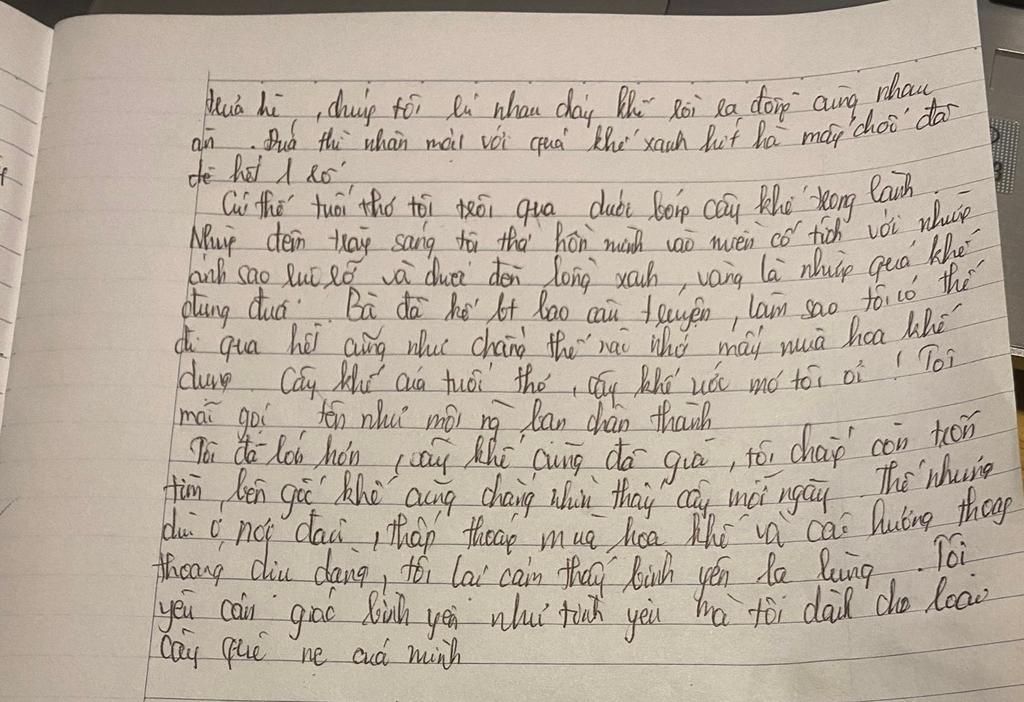 trưa hè, chúng tôi lủ nhau chảy khế rồi ra đồng cùng nhau
ăn. Đứa thì nhăn mặt với quả khế xanh hít hà mấy chốc đã
đẽ hết 1 rổ
Cứ thế tuổi thơ tôi trôi qua dưới bóng cây khế trong lành.
Những đêm trăng sáng tôi thả hồn mình vào miền cổ tích với những
ánh sao lúc lỡ và dưới đèn lồng xanh, vàng là những quả khế
đung đưa. Bà đã kể bt bao câu truyện, làm sao tôi có thể
đi qua hết cũng như chẳng thể nào nhớ mấy mùa hoa khế
dụng. Cây khế của tuổi thơ, cây khế ước mơ tôi ơi! Tôi
mãi gọi tên như một ng bạn chân thành
Tôi đã lớn hơn, cây khế cũng đã già, tôi chẳng còn trốn
tìm bên gốc khế cũng chẳng nhìn thấy cây mỗi ngày. Thế nhưng
dù ở nơi đâu, thấp thoáng mùa hoa khế và cái hương thoang
thoang dịu dàng, tôi lại cảm thấy bình yên lạ lùng. Tôi
yêu cảm giác bình yên như tình yêu mà tôi dành cho loài
cây quê nẹ của mình